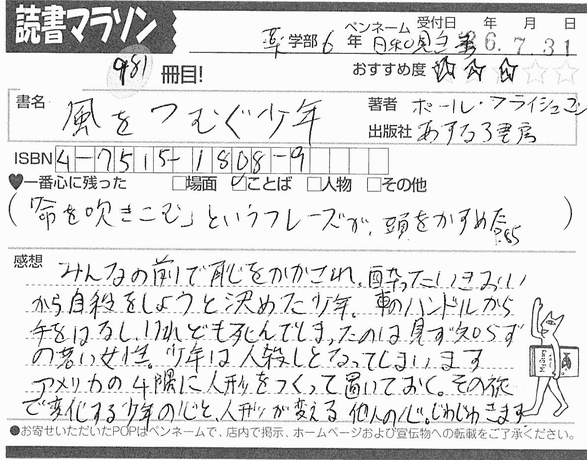 読書マラソン
薬学部6年 ペンネーム 日和見主義 受付日 年 月 日 26.7.31
981冊目! おすすめ度 ☆☆☆☆☆
書名 風をつむぐ少年 著者 ポール・フライシュマン
出版社 あすなろ書房
ISBN 4-7515-1808-9
♥一番心に残った □場面 ☑ことば □人物 □その他
(「命を吹きこむ」というフレーズが、頭をかすめた P.85)
感想 みんなの前で恥をかかされ、酔ったいきおい
から自殺をしようと決めた少年。車のハンドルから
手をはなし、けれども死んでしまったのは見ず知らず
の若い女性。少年は人殺しとなってしまいます
アメリカの4隅に人形をつくって置いておく。その旅
で変化する少年の心と、人形が変える他人の心。じわじわきます
●お寄せいただいたPOPはペンネームで、店内で掲示、ホームページおよび宣伝物への転載をご了承ください。